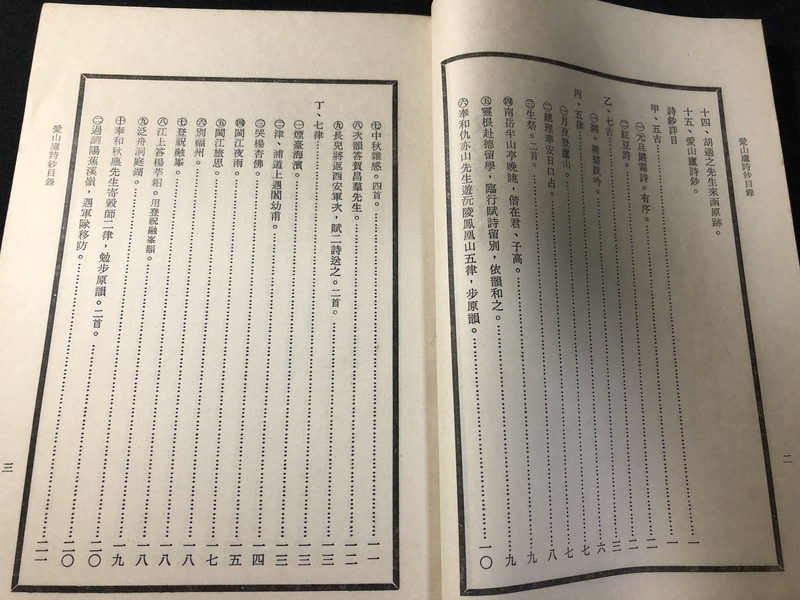 愛山廬詩鈔目錄
十四、胡適之先生來函原跡。
十五、愛山廬詩鈔。一
詩鈔詳目一
甲、五古二
㊀元旦殿霜詩。有序。二
㊁紅豆詩。三
乙、七古
㊀湘、聲鼓吟。六
丙、五律
㊀月夜登廬山。七
㊁總理奉安日口占。七
㊂生祭。二首。八
㊃南岳半山亭晚眺，偕在君、子高。九
㊄靈根赴德留學，臨行賦詩留別，依韻和之。九
㊅奉和仇亦山先生遊沅陵鳳凰山五律，步原韻。一〇
二
㊆中秋雜感。四首。一一
㊇次韻答賀昌羣先生。一二
㊈長兒將返西安軍次，賦二詩送之。二首。一二
丁、七律一三
㊀煙臺海濱。一三
㊁津、浦道上遇閻幼甫。一四
㊂哭楊杏佛。一四
㊃閩江夜雨。一五
㊄閩江旅思。一七
㊅別福州。一八
㊆登祝融峯。一八
㊇江上答楊莘耜。用登祝融峯韻。一八
㊈泛舟洞庭湖。一八
㊉奉和秋塵先生寄毅師二律，勉步原韻。二首。一九
㊀過瀏陽蕉溪嶺，遇軍隊移防。二〇
愛山廬詩鈔目錄
三